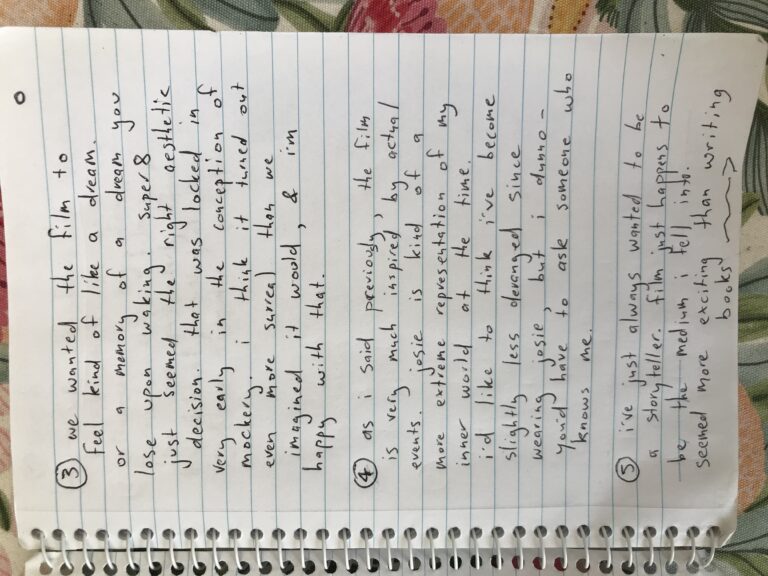 ③ we wanted the film to
feel kind of like a dream.
or a memory of a dream you
lose upon waking. super 8
just seemed the right aesthetic
decision. that was locked in
very early in the conception of
mockery. i think it turned out
even more surreal than we
imagined it would, & i'm
happy with that.
④ as i said previously, the film
is very much inspired by actual
events. josie is kind of a
more extreme representation of my
inner world at the time.
i'd like to think i've become
slightly less deranged since
wearing josie, but i dunno -
you'd have to ask someone who
knows me.
⑤ i've just always wanted to be
a storyteller. film just happens to
be the medium i fell into.
seemed more exciting than writing
books